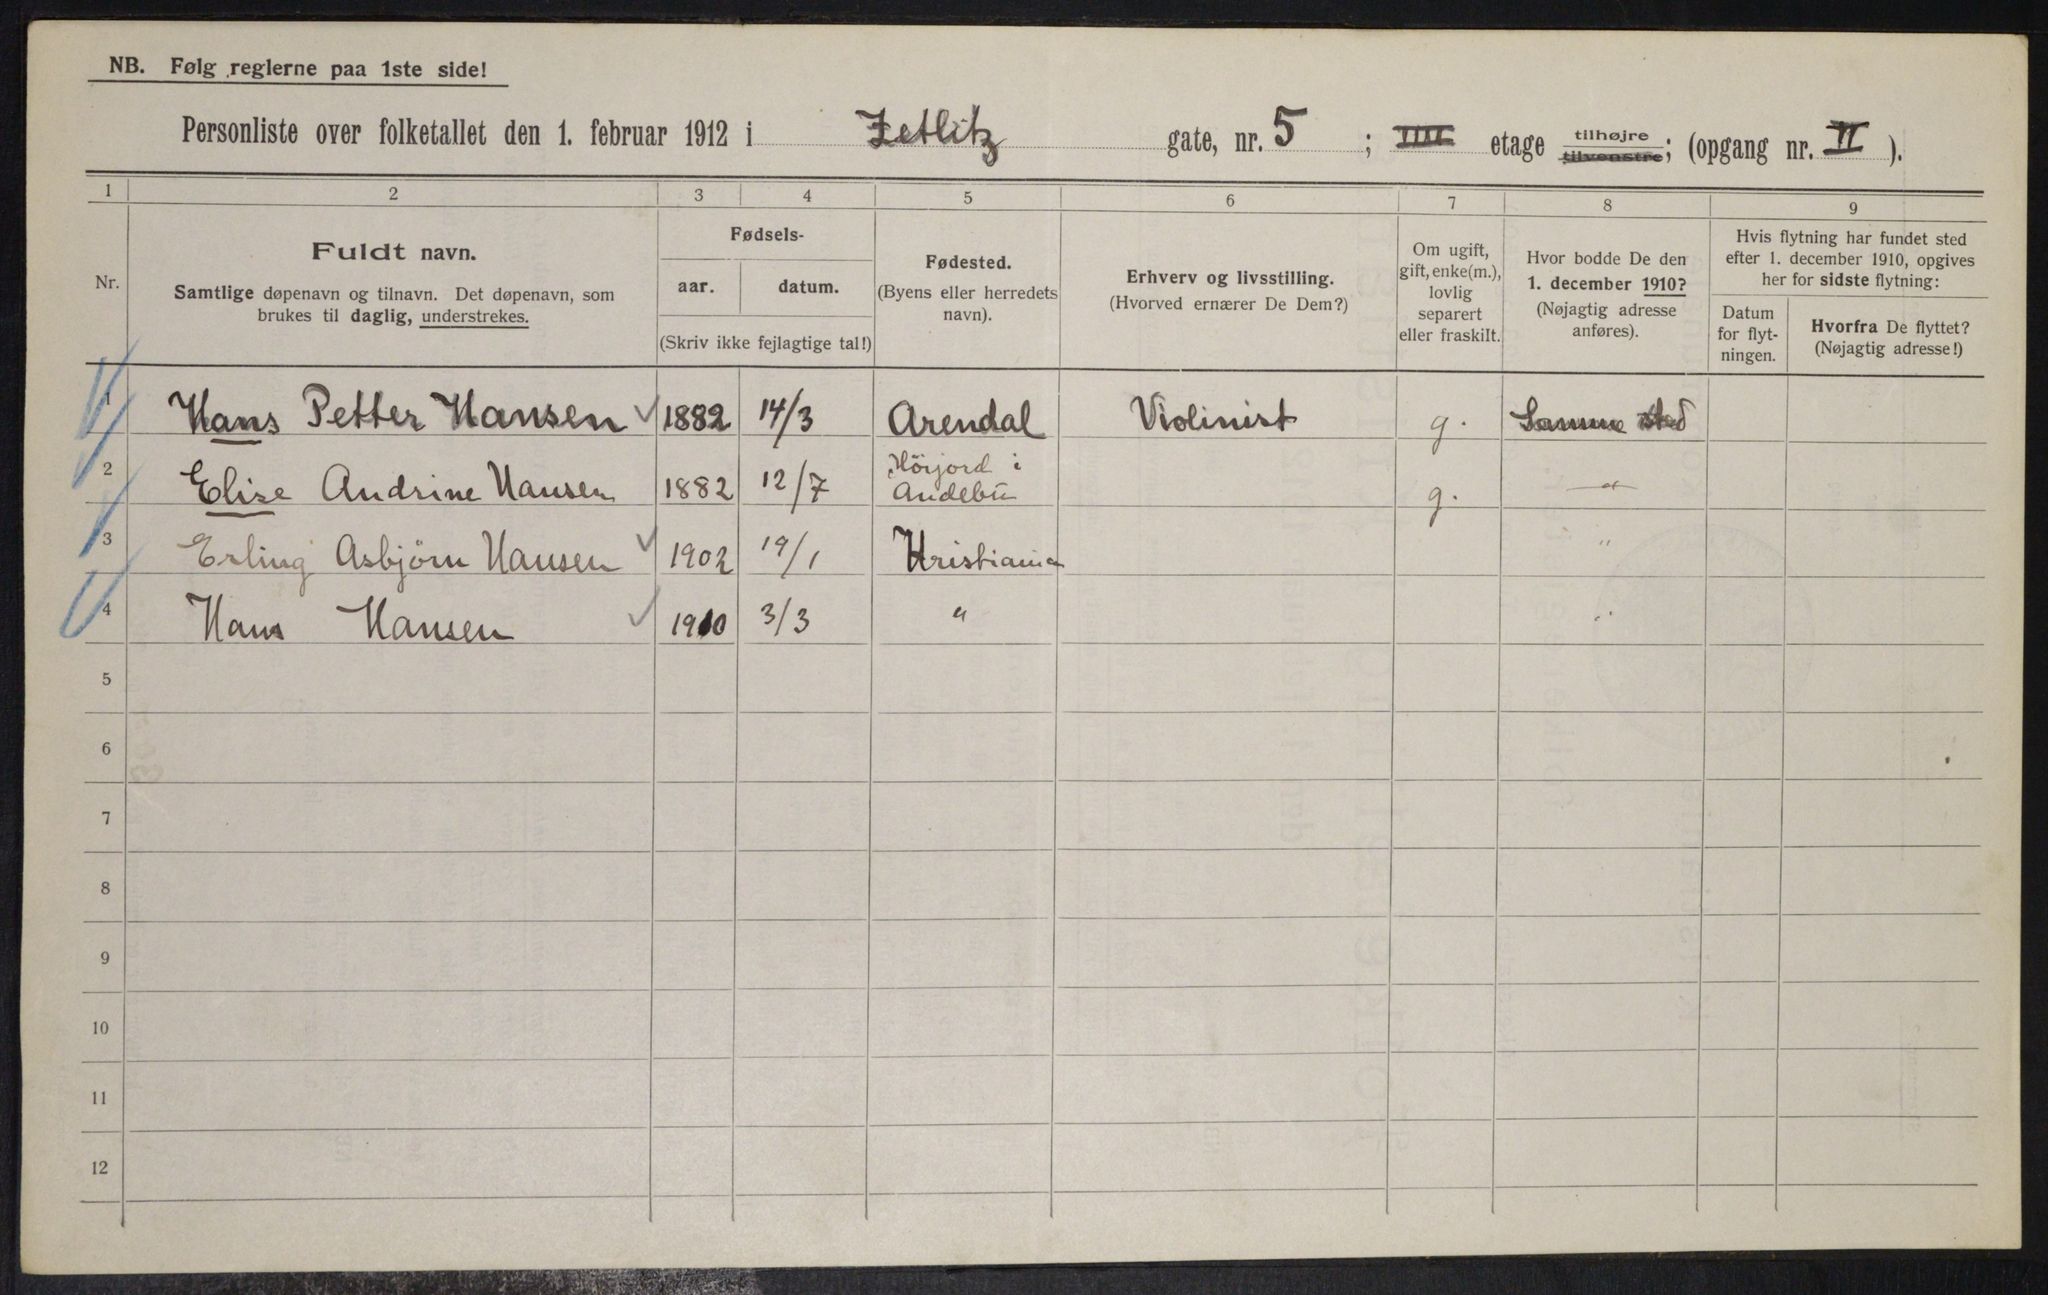 NB. Følg reglerne paa 1ste side!
Personliste over folketallet den 1. februar 1912 i Zetlitz gate, nr. 5 ; IIII etage tilhøjre tilvenstre; (opgang nr. II ).
1 2 3 4 5 6 7 8 9
Nr.
Fuldt navn.
Samtlige døpenavn og tilnavn. Det døpenavn, som
brukes til daglig, understrekes.
Fødsels-
aar. datum.
(Skriv ikke fejlagtige tal!)
Fødested.
(Byens eller herredets
navn).
Erhverv og livsstilling.
(Hvorved ernærer De Dem?)
Om ugift,
gift, enke(m.),
lovlig
separert
eller fraskilt.
Hvor bodde De den
1. december 1910?
(Nøjagtig adresse
anføres).
Hvis flytning har fundet sted
efter 1. december 1910, opgives
her for sidste flytning:
Datum
for flyt-
ningen.
Hvorfra De flyttet?
(Nøjagtig adresse!)
1 Hans Petter Hansen 1882 14/3 Arendal Violinist g. Samme sted
2 Elise Andrine Hansen 1882 12/7 Hörjord i Andebu g. — " —
3 Erling Asbjörn Hansen 1902 19/1 Kristiania "
4 Hans Hansen 1910 3/3 " "
5
6
7
8
9
10
11
12